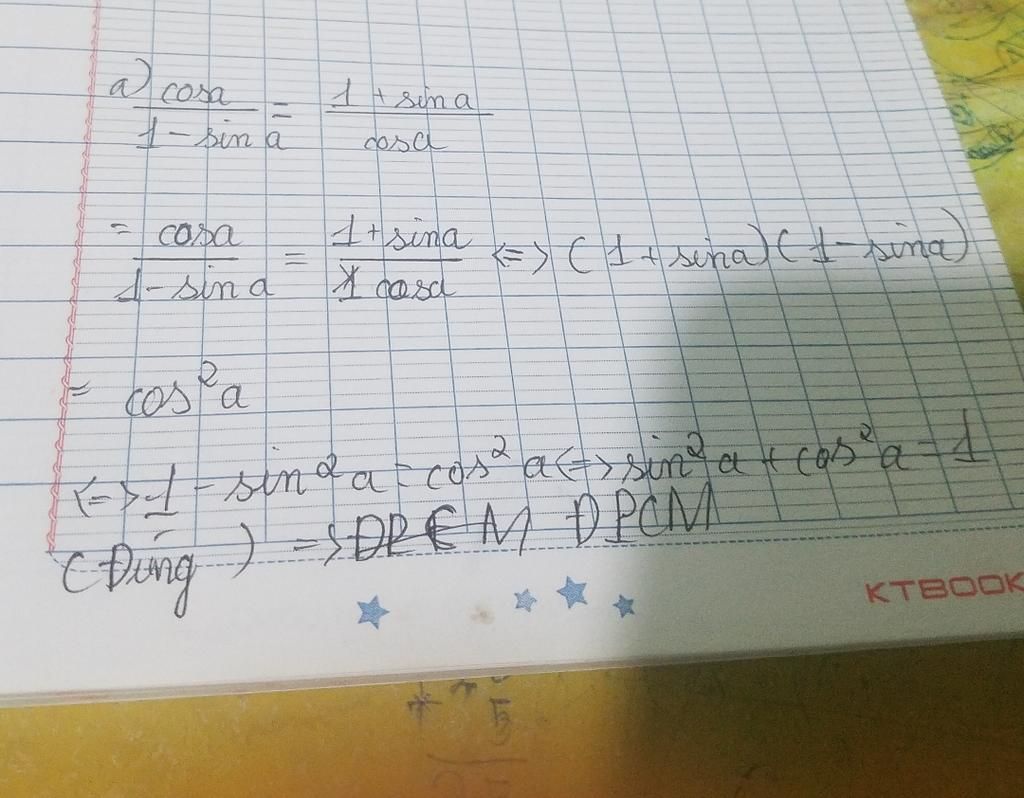 a) cosa / 1 - sin a = 1 + sin a / cosa
= cosa / 1 - sin a = 1 + sina / 1 cosa <=> (1 + sina)(1 - sina)
= cos²a
<=> 1 - sin²a = cos²a <=> sin²a + cos²a = 1
(Đúng) => ĐPCM ĐPCM
KTBOOK